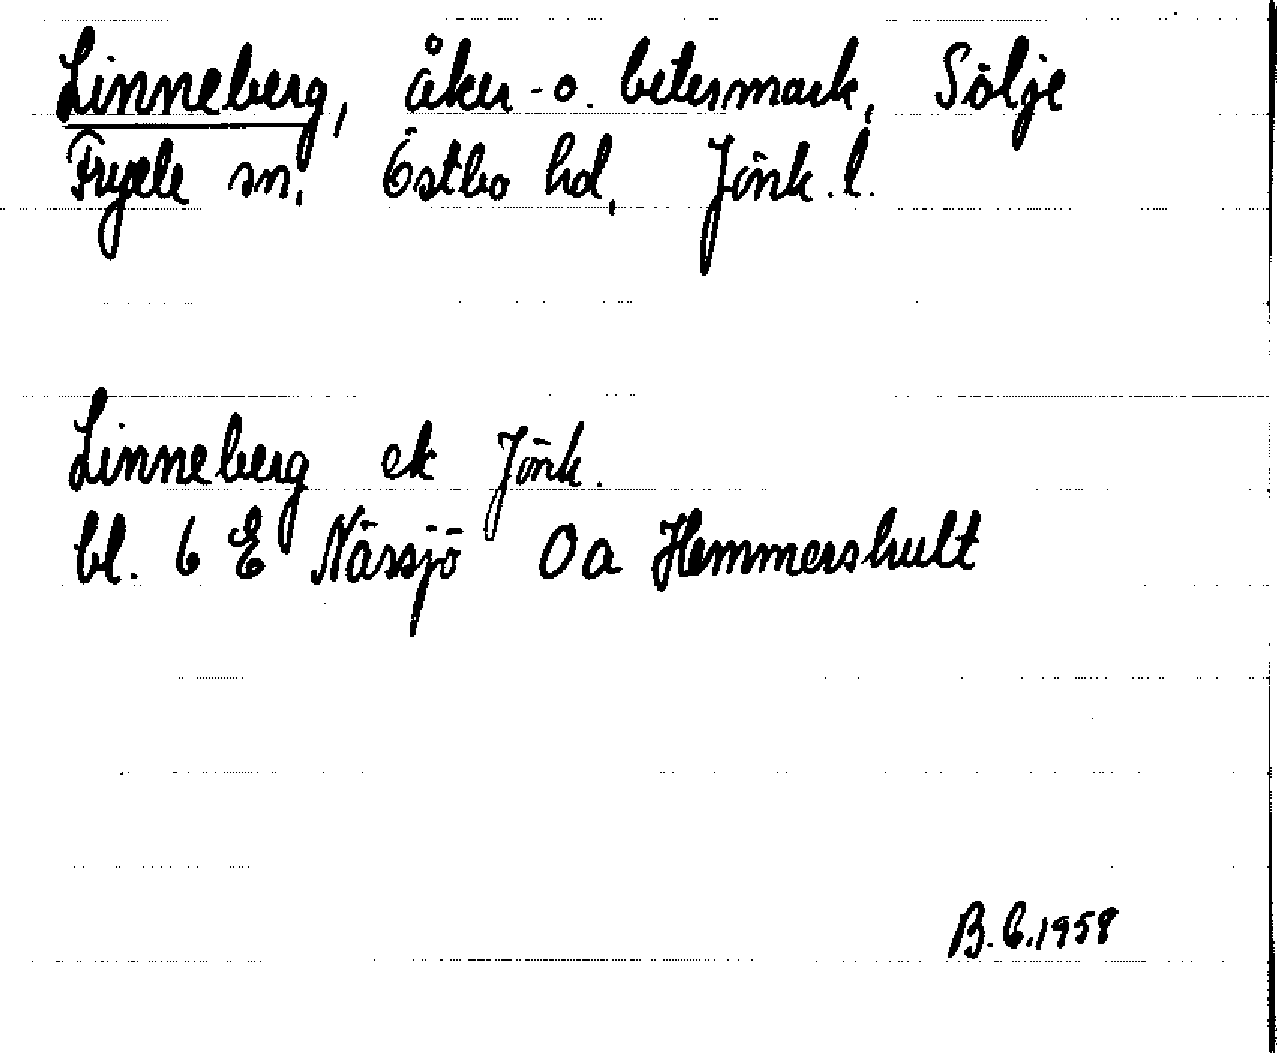 Linneberg, åker- o. betesmark, Sölje
Fryele sn, Östbo hd, Jönk. l.
Linneberg ek Jönk.
bl. 6 E Nässjö Oa Hemmershult
B.C.1958